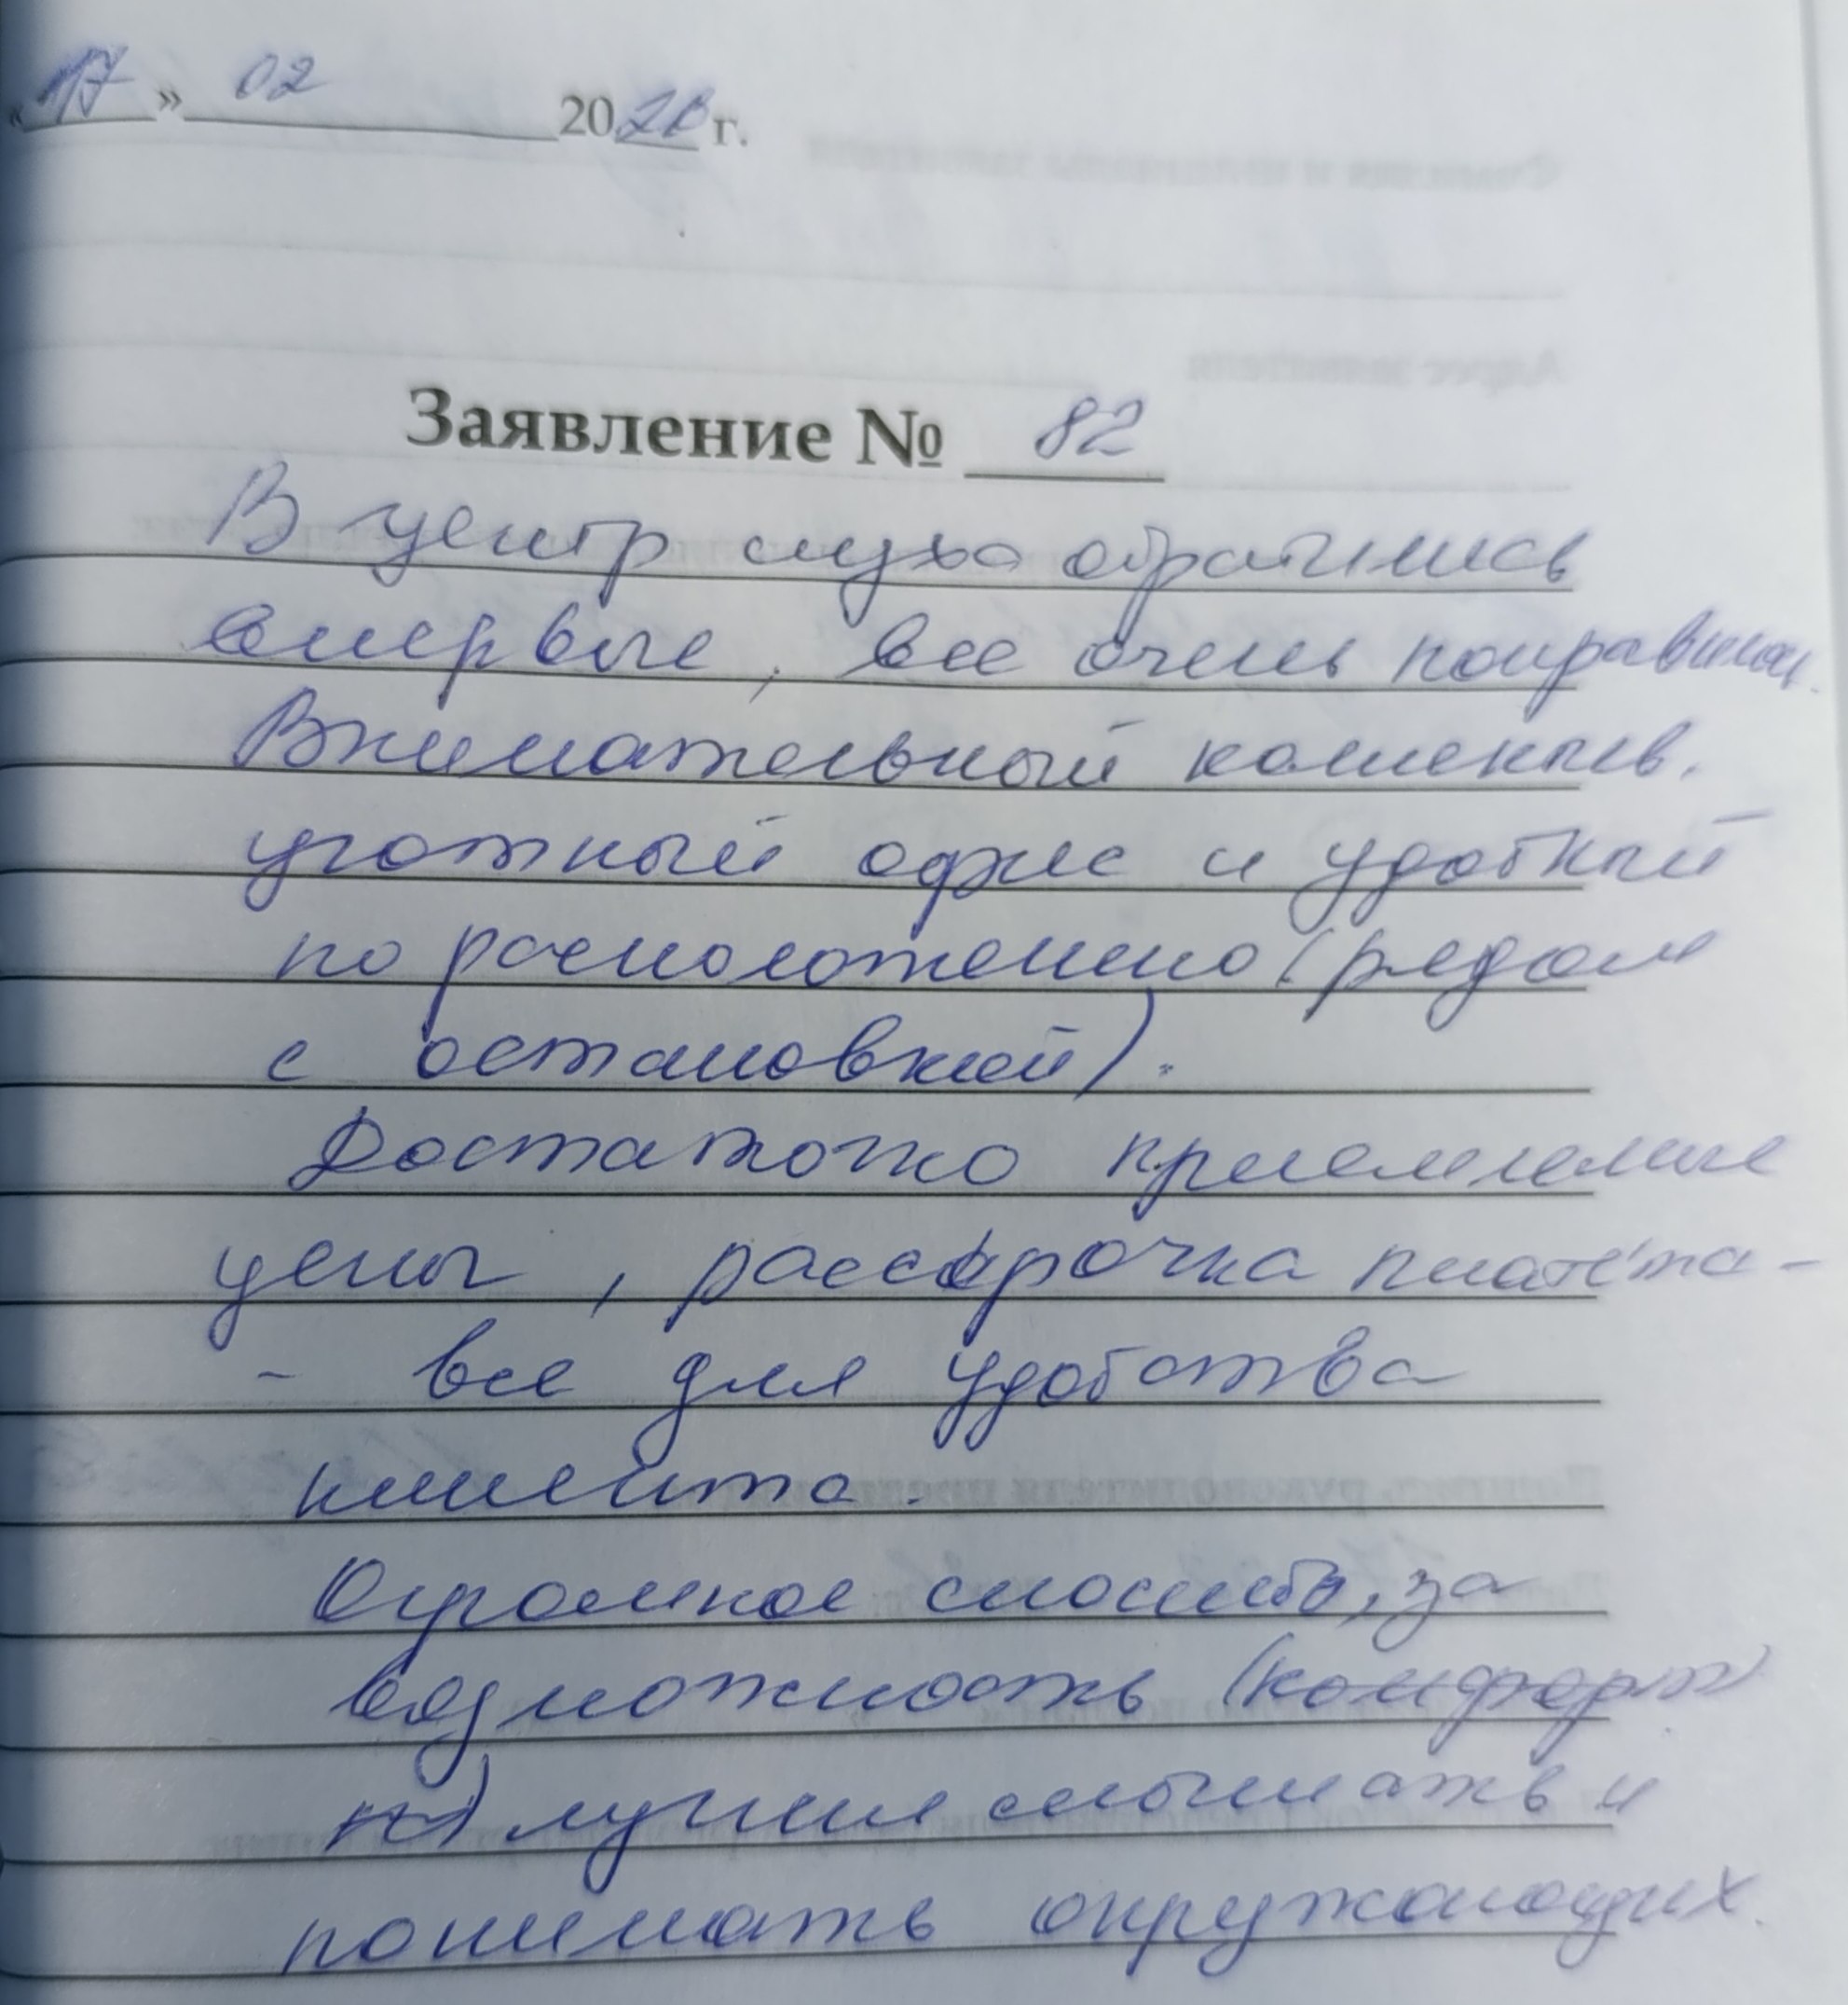 «17» 02 20 г.
Заявление № 82
В центр слуха обратились
впервые, все очень понравилось.
Внимательный коллектив,
уютный офис и удобный
по расположению (рядом
с остановкой).
Достаточно приемлемые
цены, рассрочка платежа -
- все для удобства
клиента.
Огромное спасибо, за
возможность (комфорт
но) лучше слышать и
понимать окружающих.